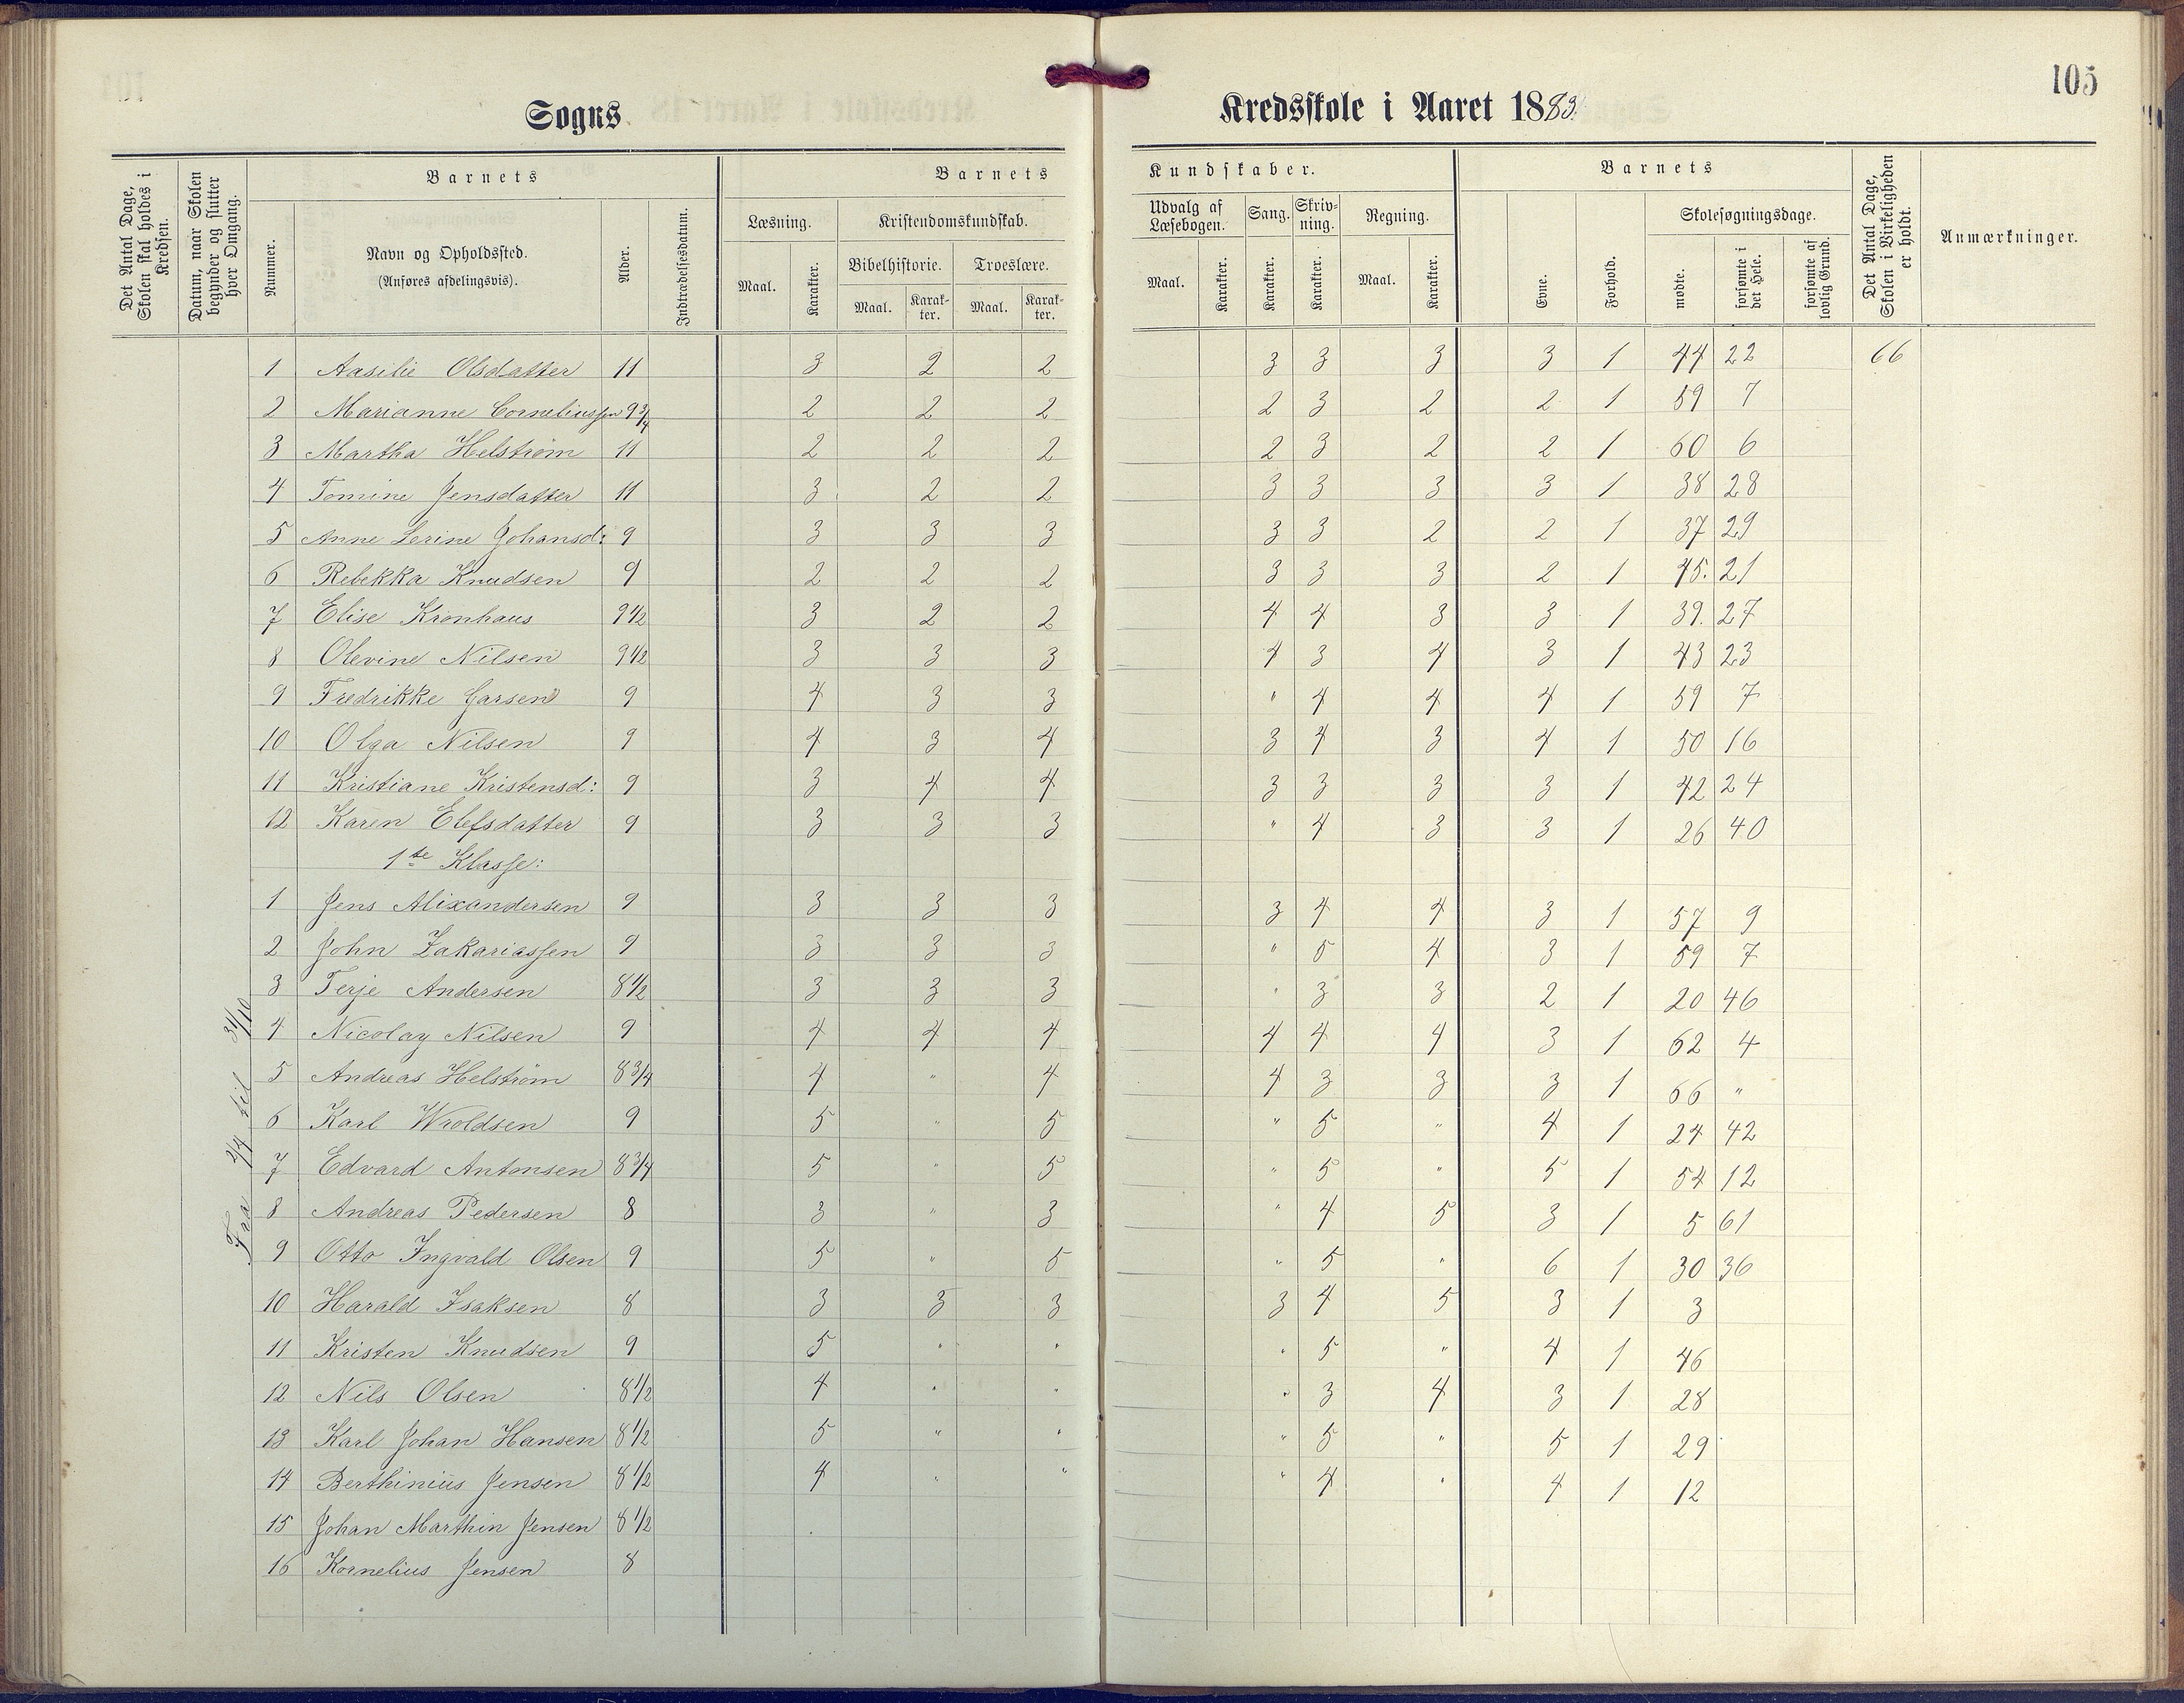 105
Sogns Kredsskole i Aaret 1883.
Det Antal Dage, Skolen skal holdes i Kredsen.
Datum, naar Skolen begynder og slutter hver Omgang.
Barnets
Nummer.
Navn og Opholdssted. (Anføres afdelingsvis).
Alder.
Indtrædelsesdatum.
Barnets Kundskaber.
Læsning.
Maal. Karakter.
Kristendomskundskab.
Bibelhistorie. Troeslære.
Maal. Karakter. Maal. Karakter.
Udvalg af Læsebogen.
Maal. Karakter.
Sang. Karakter.
Skrivning. Karakter.
Regning.
Maal. Karakter.
Barnets
Evne. Forhold.
Skolesøgningsdage.
mødte. forsømte i det Hele. forsømte af lovlig Grund.
Det Antal Dage, Skolen i Virkeligheden er holdt.
Anmærkninger.
1 Aasilie Olsdatter 11 3 2 2 3 3 3 3 1 44 22 66
2 Marianne Corneliussen 9 3/4 2 2 2 2 3 2 2 1 59 7
3 Martha Helstrøm 11 2 2 2 2 3 2 2 1 60 6
4 Tomine Jensdatter 11 3 2 2 3 3 3 3 1 38 28
5 Anne Serine Johansd: 9 3 3 3 3 3 2 2 1 37 29
6 Rebekka Knudsen 9 2 2 2 3 3 3 2 1 45. 21
7 Elise Kronhaus 9 1/2 3 2 2 4 4 3 3 1 39. 27
8 Olevine Nilsen 9 1/2 3 3 3 4 3 4 3 1 43 23
9 Fredrikke Garsen 9 4 3 3 " 4 4 4 1 59 7
10 Olga Nilsen 9 4 3 4 3 4 3 4 1 50 16
11 Kristiane Kristensd: 9 3 4 4 3 3 3 3 1 42 24
12 Karen Elefsdatter 9 3 3 3 " 4 3 3 1 26 40
1ste Klasse:
1 Jens Alixandersen 9 3 3 3 3 4 4 3 1 57 9
2 John Zakariassen 9 3 3 3 " 5 4 3 1 59 7
3 Terje Andersen 8 1/2 3 3 3 " 3 3 2 1 20 46
4 Nicolay Nilsen 9 4 4 4 4 4 4 3 1 62 4
5 Andreas Helstrøm 8 3/4 4 " 4 4 3 3 3 1 66 "
6 Karl Wroldsen 9 5 " 5 " 5 " 4 1 24 42
7 Edvard Antonsen 8 3/4 5 " 5 " 5 " 5 1 54 12
8 Andreas Pedersen 8 3 " 3 " 4 5 3 1 5 61
9 Otto Ingvald Olsen 9 5 " 5 " 5 " 6 1 30 36
10 Harald Isaksen 8 3 3 3 3 4 5 3 1 3
11 Kristen Knudsen 9 5 " " " 5 " 4 1 46
12 Nils Olsen 8 1/2 4 " " " 3 4 3 1 28
13 Karl Johan Hansen 8 1/2 5 " " " 5 " 5 1 29
14 Berthinius Jensen 8 1/2 4 " " " 4 " 4 1 12
15 Johan Marthin Jensen 8 1/2
16 Kornelius Jensen 8
Fra 2/4 til 31/10